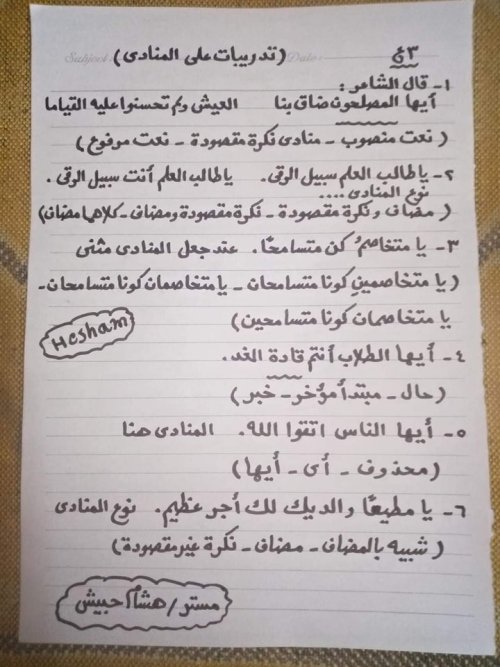 ٣ع (تدريبات على المنادى)
١- قال الشاعر:
أيها المصلحون ضاق بنا العيش ولم تحسنوا عليه القياما
(نعت منصوب - منادى نكرة مقصودة - نعت مرفوع)
٢- يا طالب العلم سبيل الرقى. يا طالب العلم أنت سبيل الرقى.
نوع المنادى ....
(مضاف ونكرة مقصودة - نكرة مقصودة ومضاف - كلاهما مضاف)
٣- يا متخاصمُ كن متسامحًا. عند جعل المنادى مثنى
(يا متخاصمين كونا متسامحان - يا متخاصمان كونا متسامحان -
يا متخاصمان كونا متسامحين)
Hesham
٤- أيها الطلاب أنتم قادة الغد.
(حال - مبتدأ مؤخر - خبر)
٥- أيها الناس اتقوا الله. المنادى هنا
(محذوف - أى - أيها)
٦- يا مطيعًا والديك لك أجر عظيم. نوع المنادى
(شبيه بالمضاف - مضاف - نكرة غير مقصودة)
مستر/هشام حبيش